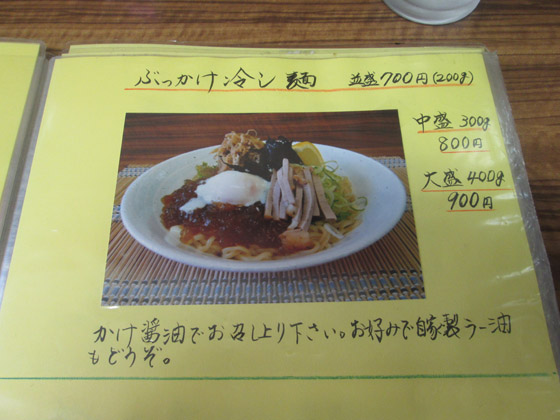 ぶっかけ冷し麺 並盛700円(200g)
中盛 300g
800円
大盛 400g
900円
かけ醤油でお召し上り下さい。お好みで自家製ラー油
もどうぞ。